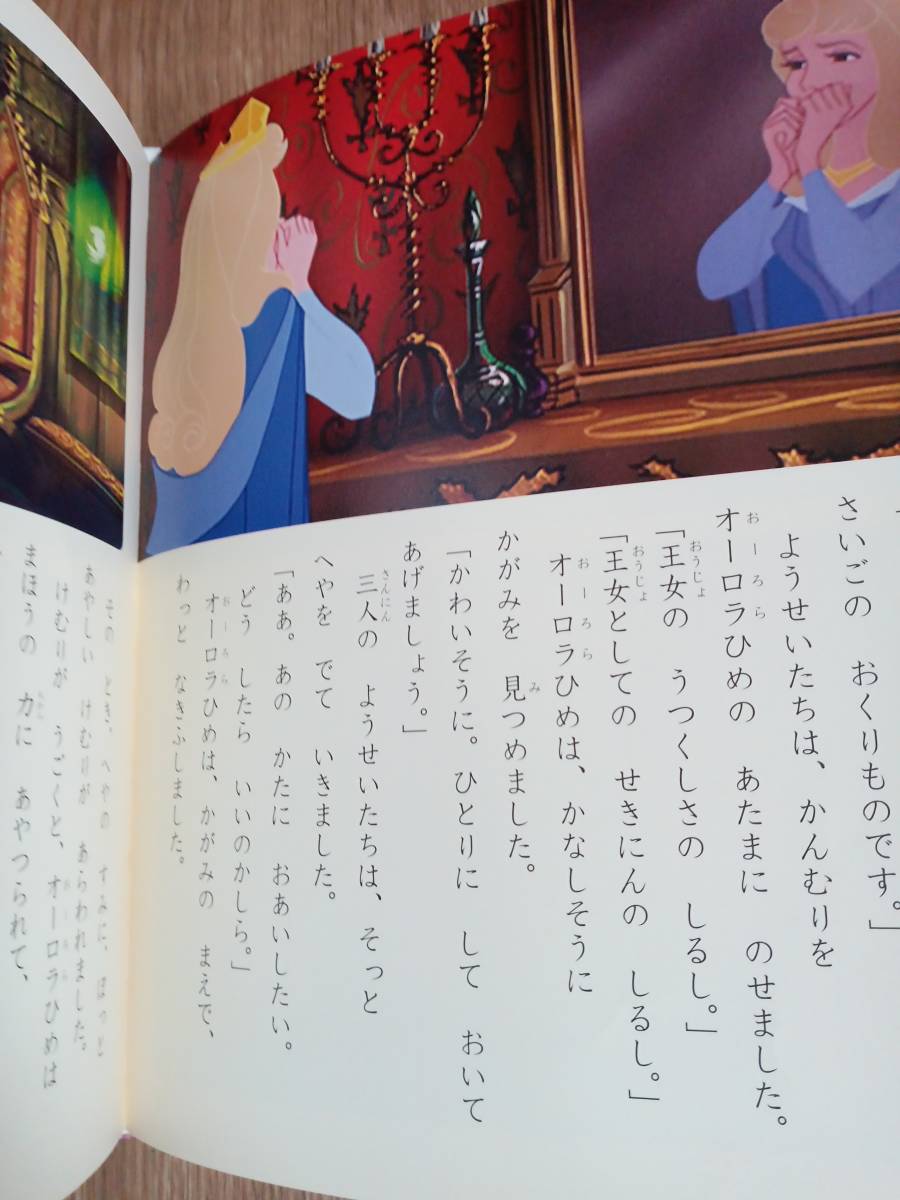 さいごの　おくりものです。」
ようせいたちは、かんむりを
オーロラひめの　あたまに　のせました。
「王女の　うつくしさの　しるし。」
「王女としての　せきにんの　しるし。」
オーロラひめは、かなしそうに
かがみを　見つめました。
「かわいそうに。ひとりに　して　おいて
あげましょう。」
三人の　ようせいたちは、そっと
へやを　でて　いきました。
「ああ。あの　かたに　おあいしたい。
どう　したら　いいのかしら。」
オーロラひめは、かがみの　まえで、
わっと　なきふしました。
その　とき、へやの　すみに、ぼっと
あやしい　けむりが　あらわれました。
けむりが　うごくと、オーロラひめは
まほうの　力に　あやつられて、